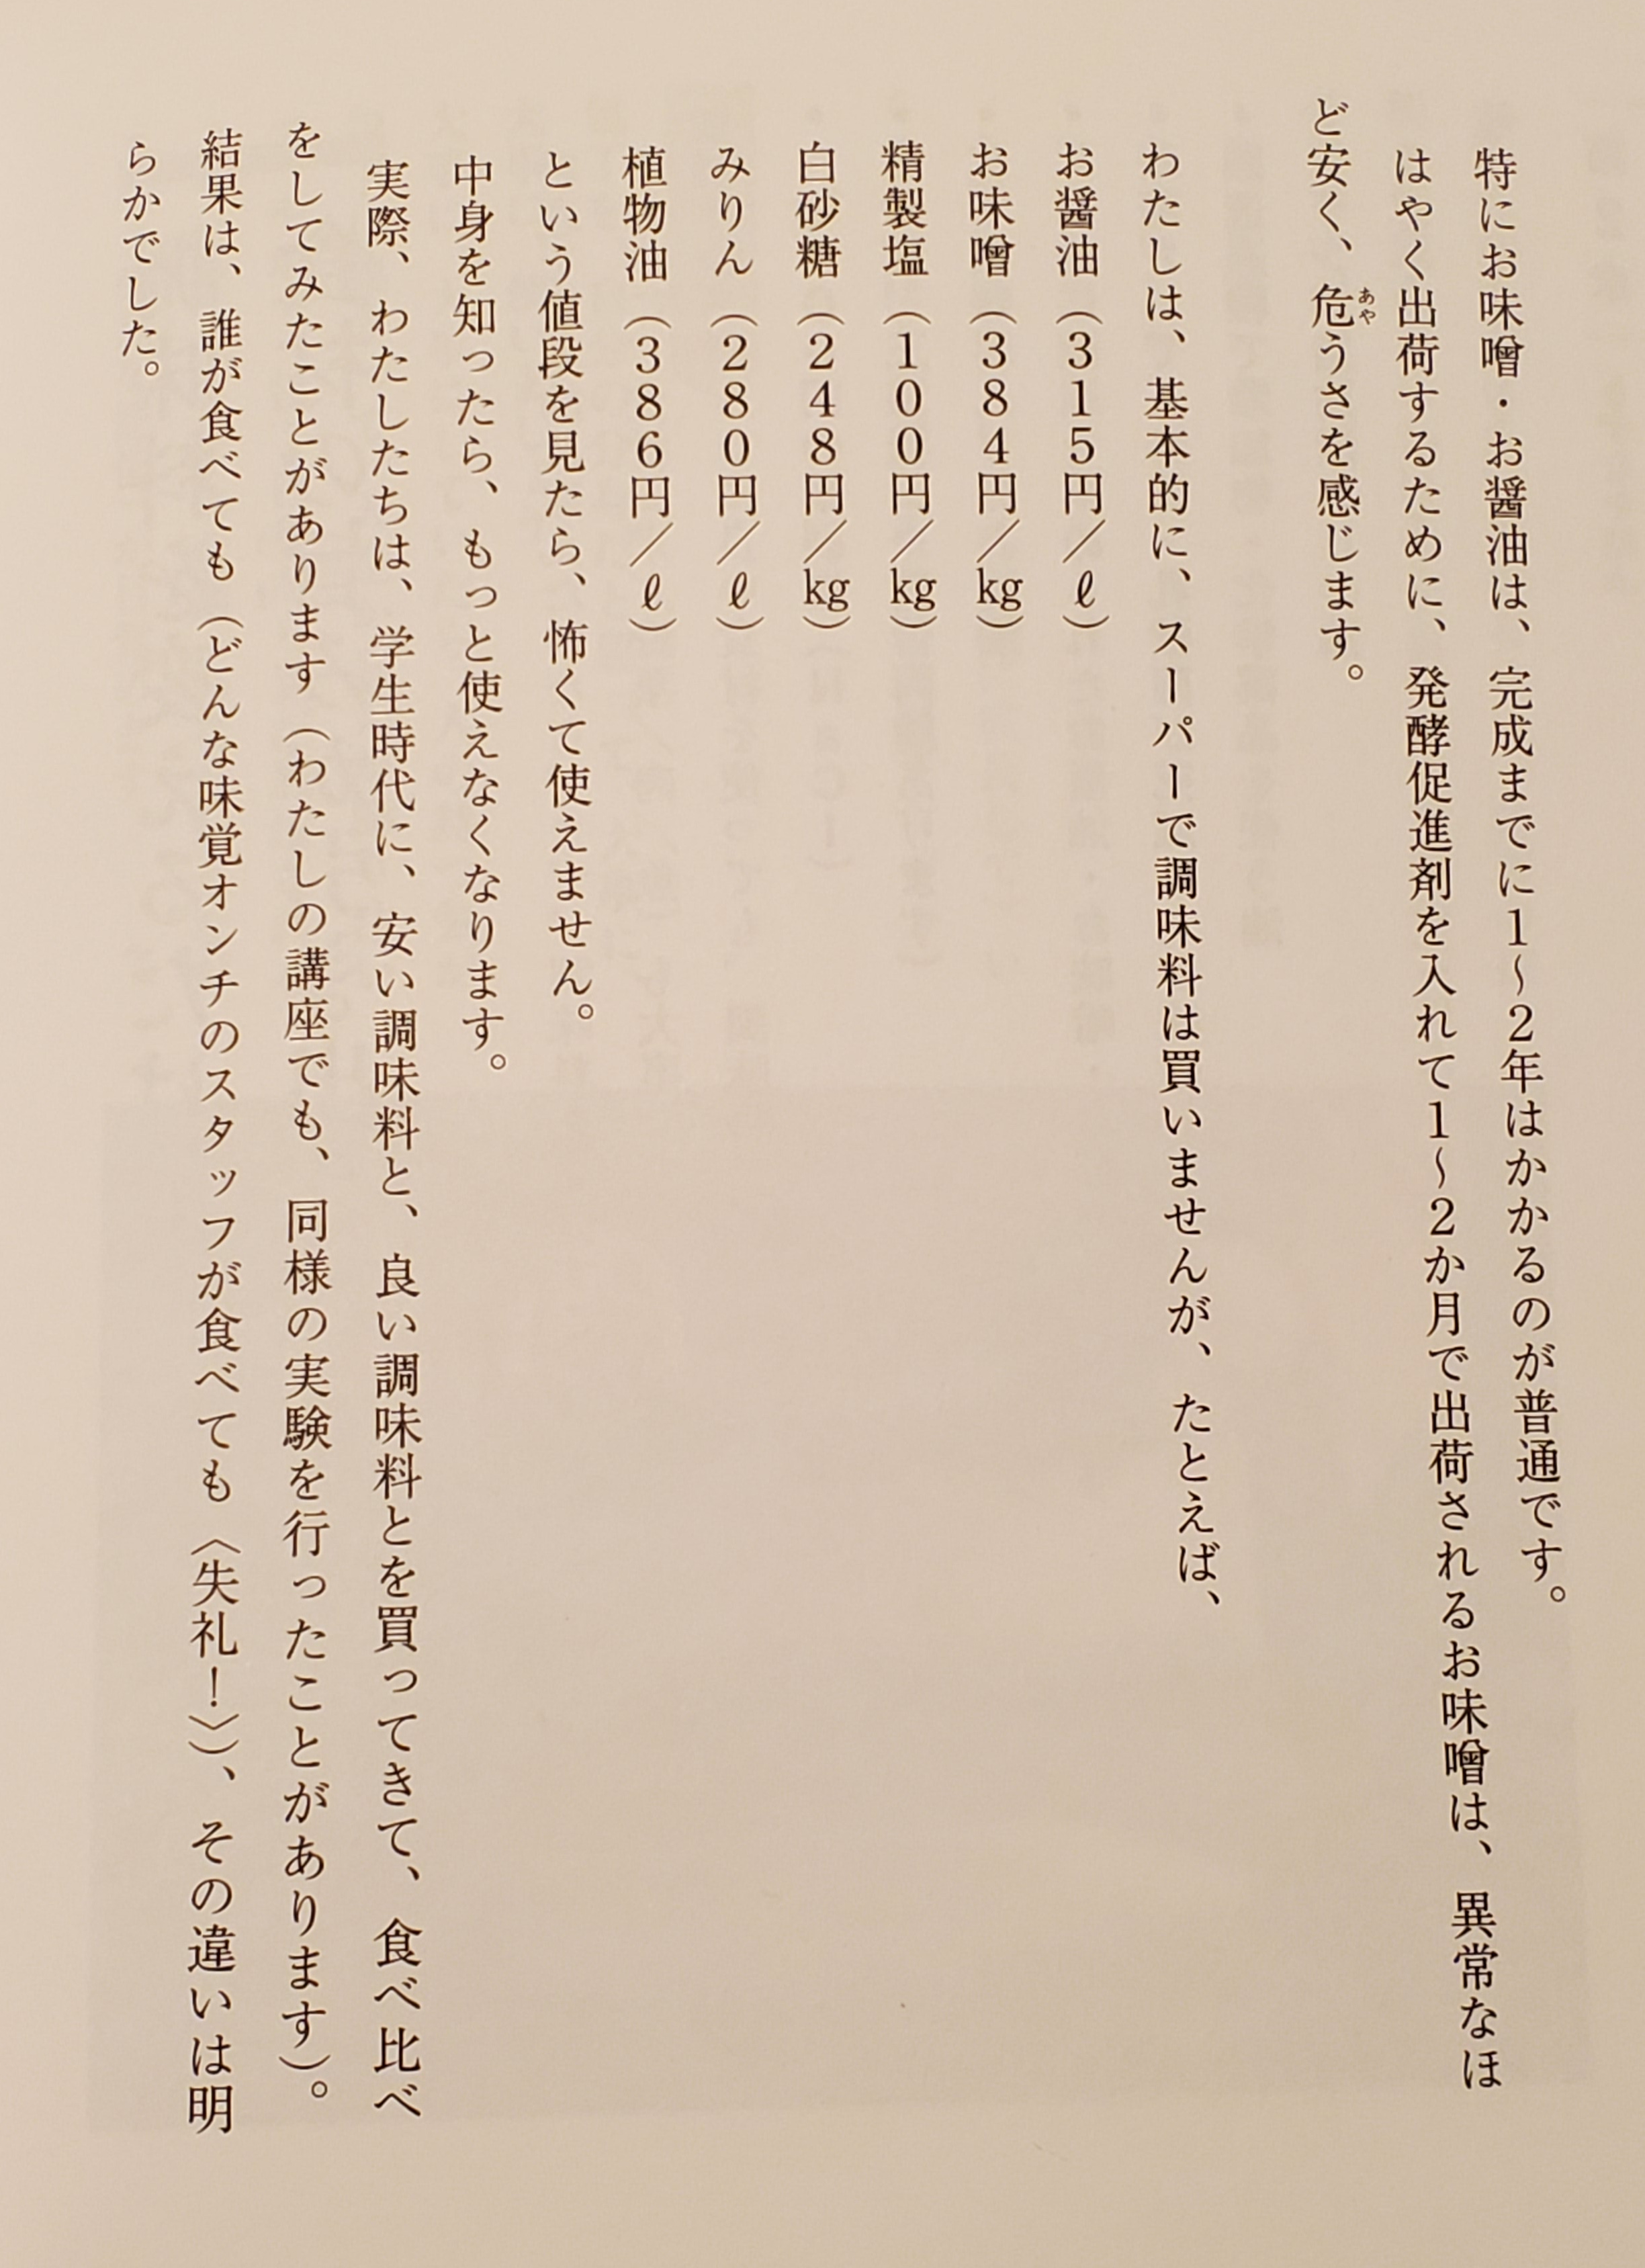 特にお味噌・お醤油は、完成までに1〜2年はかかるのが普通です。
はやく出荷するために、発酵促進剤を入れて1〜2か月で出荷されるお味噌は、異常なほ
ど安く、危うさを感じます。
わたしは、基本的に、スーパーで調味料は買いませんが、たとえば、
お醤油（315円／ℓ）
お味噌（384円／kg）
精製塩（100円／kg）
白砂糖（248円／kg）
みりん（280円／ℓ）
植物油（386円／ℓ）
という値段を見たら、怖くて使えません。
中身を知ったら、もっと使えなくなります。
実際、わたしたちは、学生時代に、安い調味料と、良い調味料とを買ってきて、食べ比べ
をしてみたことがあります（わたしの講座でも、同様の実験を行ったことがあります）。
結果は、誰が食べても（どんな味覚オンチのスタッフが食べても〈失礼！〉）、その違いは明
らかでした。